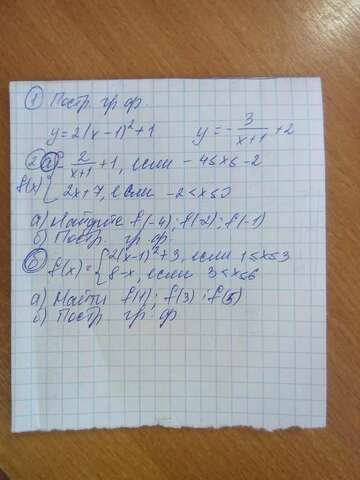 ① Постр. гр. ф.
y = 2(x-1)² + 1    y = - 3/(x+1) + 2
② а) f(x) = { - 2/(x+1) + 1, если -4 ≤ x ≤ -2
2x + 7, если -2 < x ≤
а) Найдите f(-4); f(-2); f(-1)
б) Постр. гр. ф.
б) f(x) = { 2(x-1)² + 3, если 1 ≤ x ≤ 3
8 - x, если 3 < x ≤ 6
а) Найти f(1); f(3); f(5)
б) Постр. гр. ф.